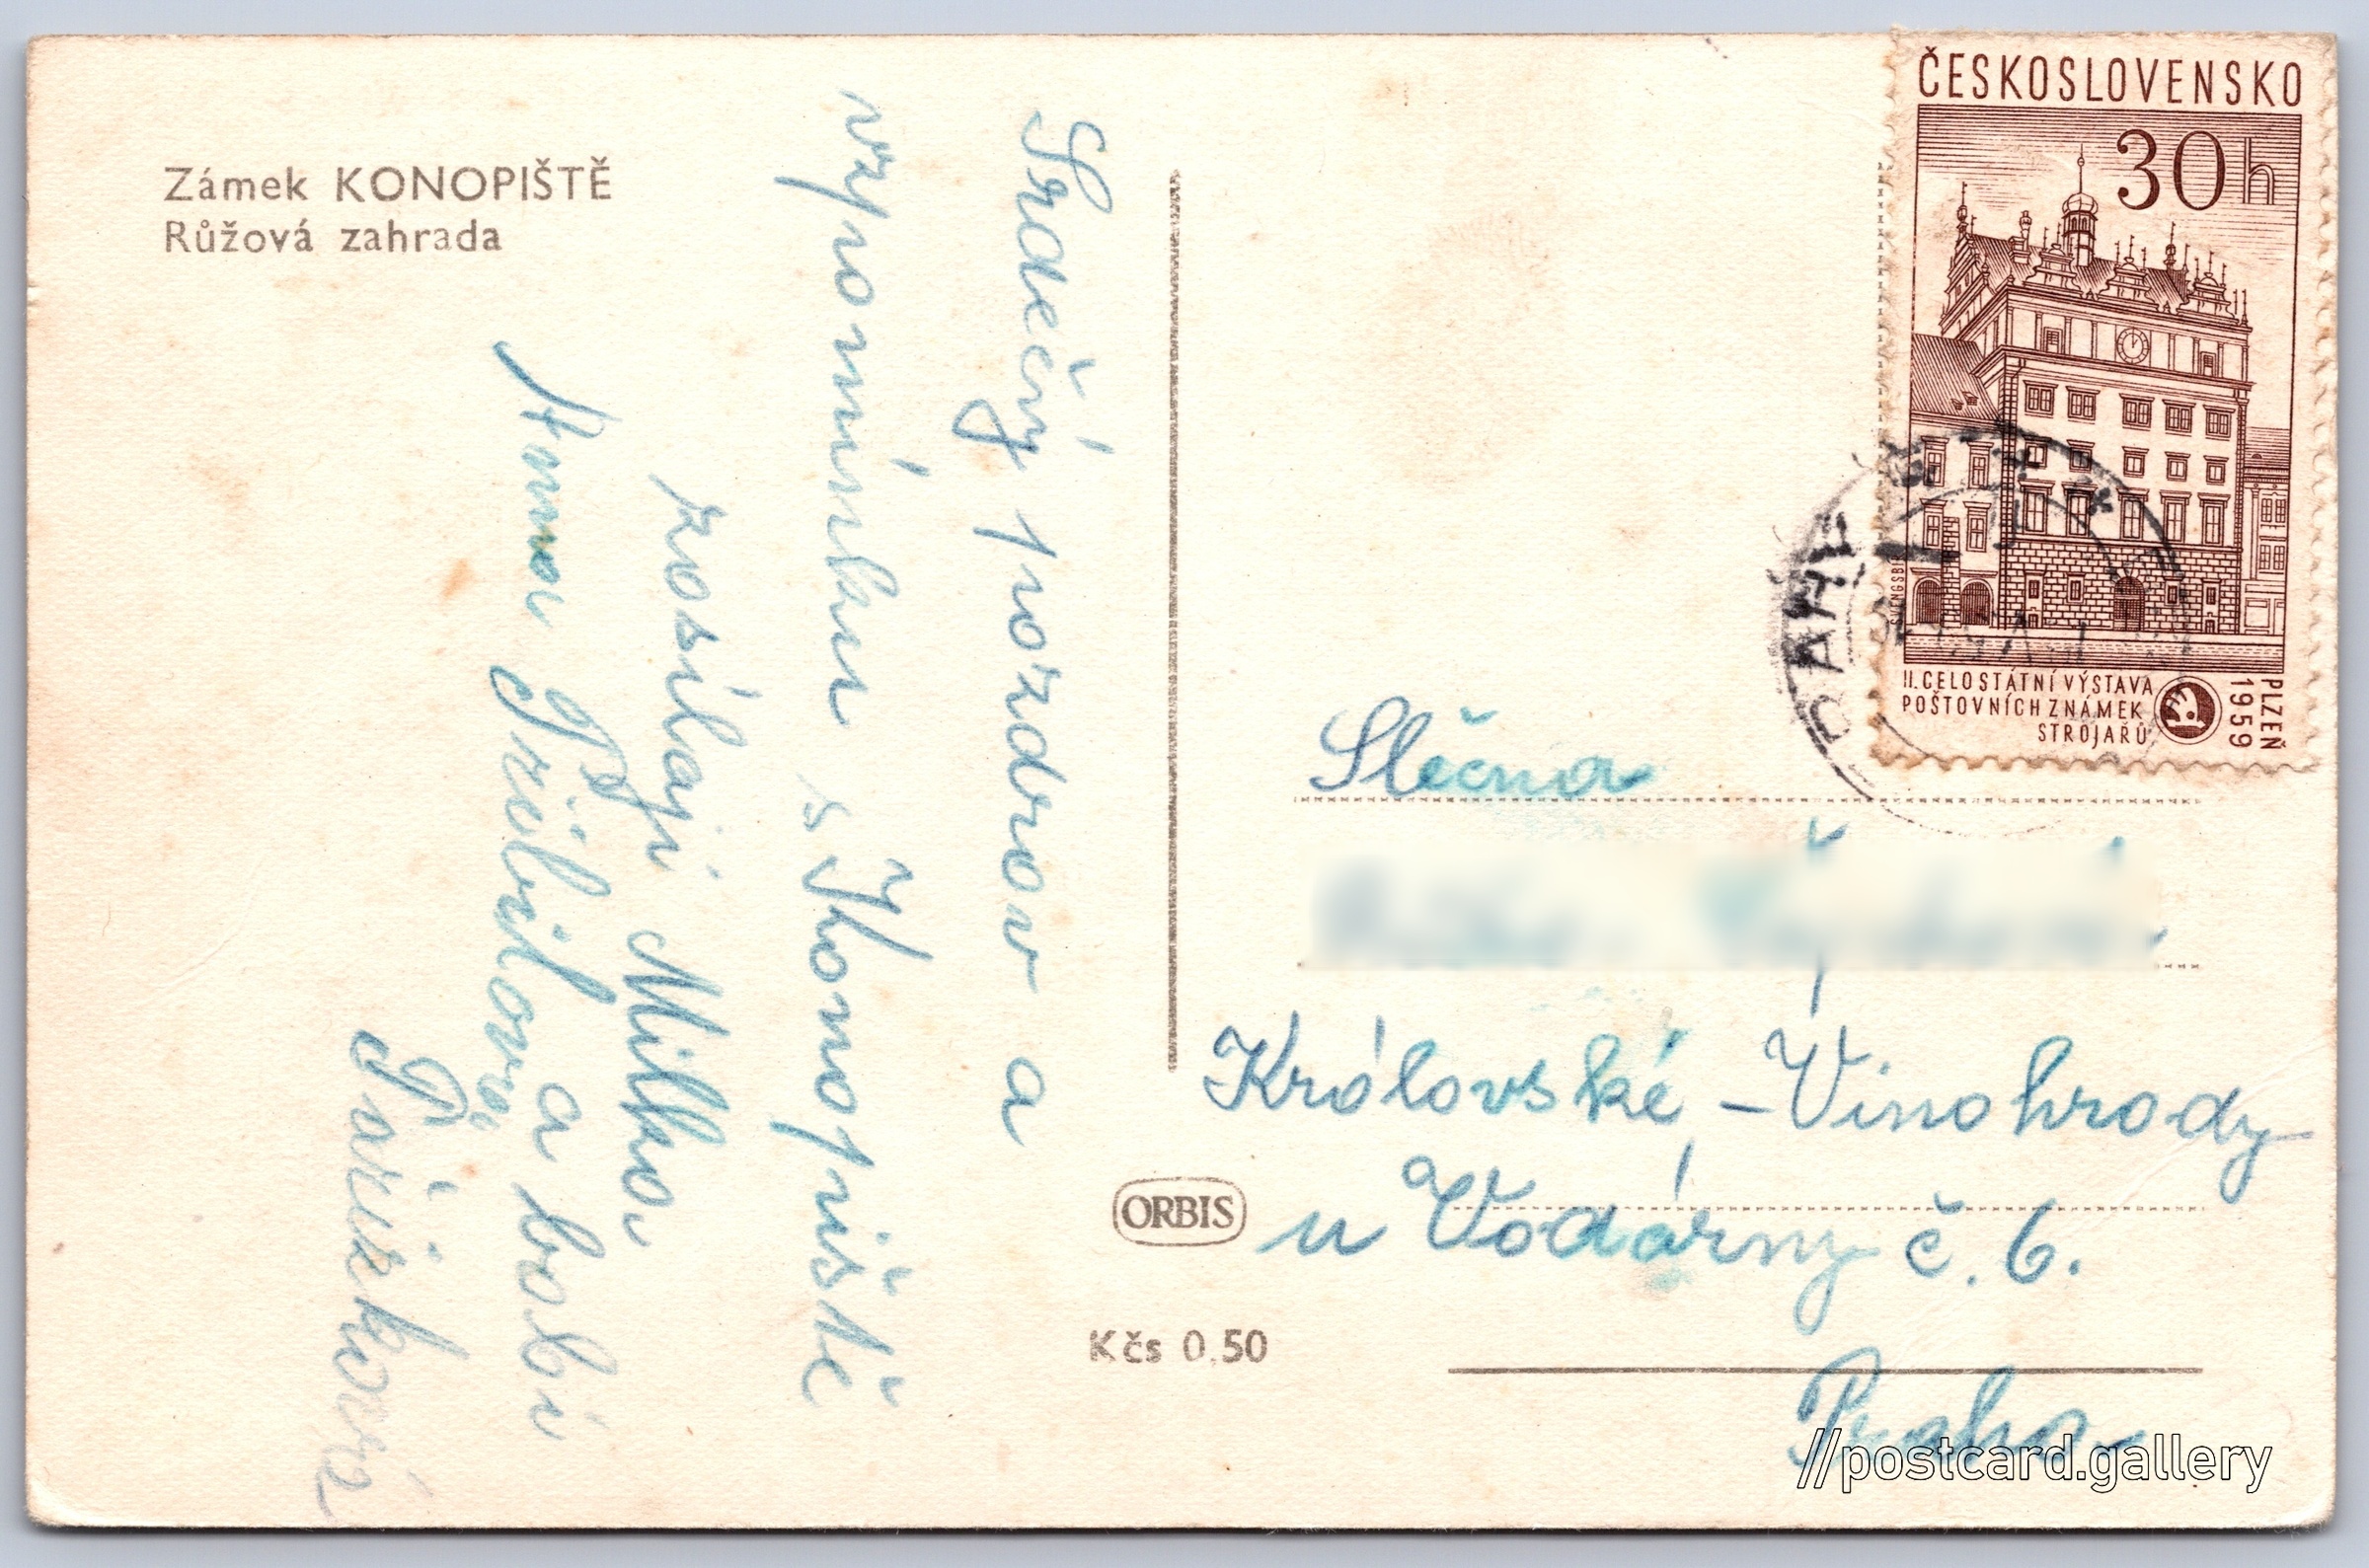 Zámek KONOPIŠTĚ
Růžová zahrada
Srdečný pozdrav a
vzpomínku s Konopiště
zosílají Milka,
Anna
a bobi
Pařízkoví
ORBIS
Kčs 0,50
ČESKOSLOVENSKO
30h
II. CELOSTÁTNÍ VÝSTAVA
POŠTOVNÍCH ZNÁMEK
STROJAŘŮ
PLZEŇ
1959
Slečna
Královské - Vinohrady
u Vodárny č. 6.
Praha
//postcard.gallery